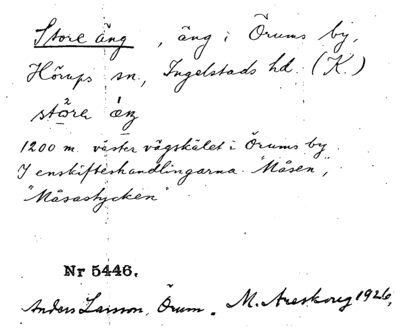 Store äng, äng i Örums by,
Hörups sn, Ingelstads hd. (K.)
störe
1200 m. väster vägskälet i Örums by.
I enskifteshandlingarna. "Måsen",
"Måsastycken"
Nr 5446.
Anders Larsson, Örum. M. Areskoug 1926.